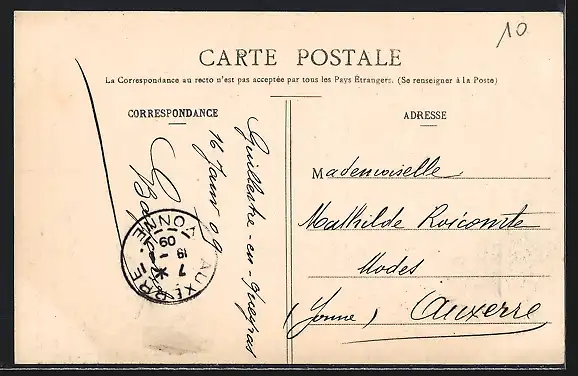 10
CARTE POSTALE
La Correspondance au recto n'est pas acceptée par tous les Pays Étrangers. (Se renseigner à la Poste)
CORRESPONDANCE
Guillestre-en-Queyras
16 Janv 09
ADRESSE
Mademoiselle
Mathilde Roicomte
Modes
(Yonne) Auxerre
AUXERRE
YONNE
7
19 - 1
09